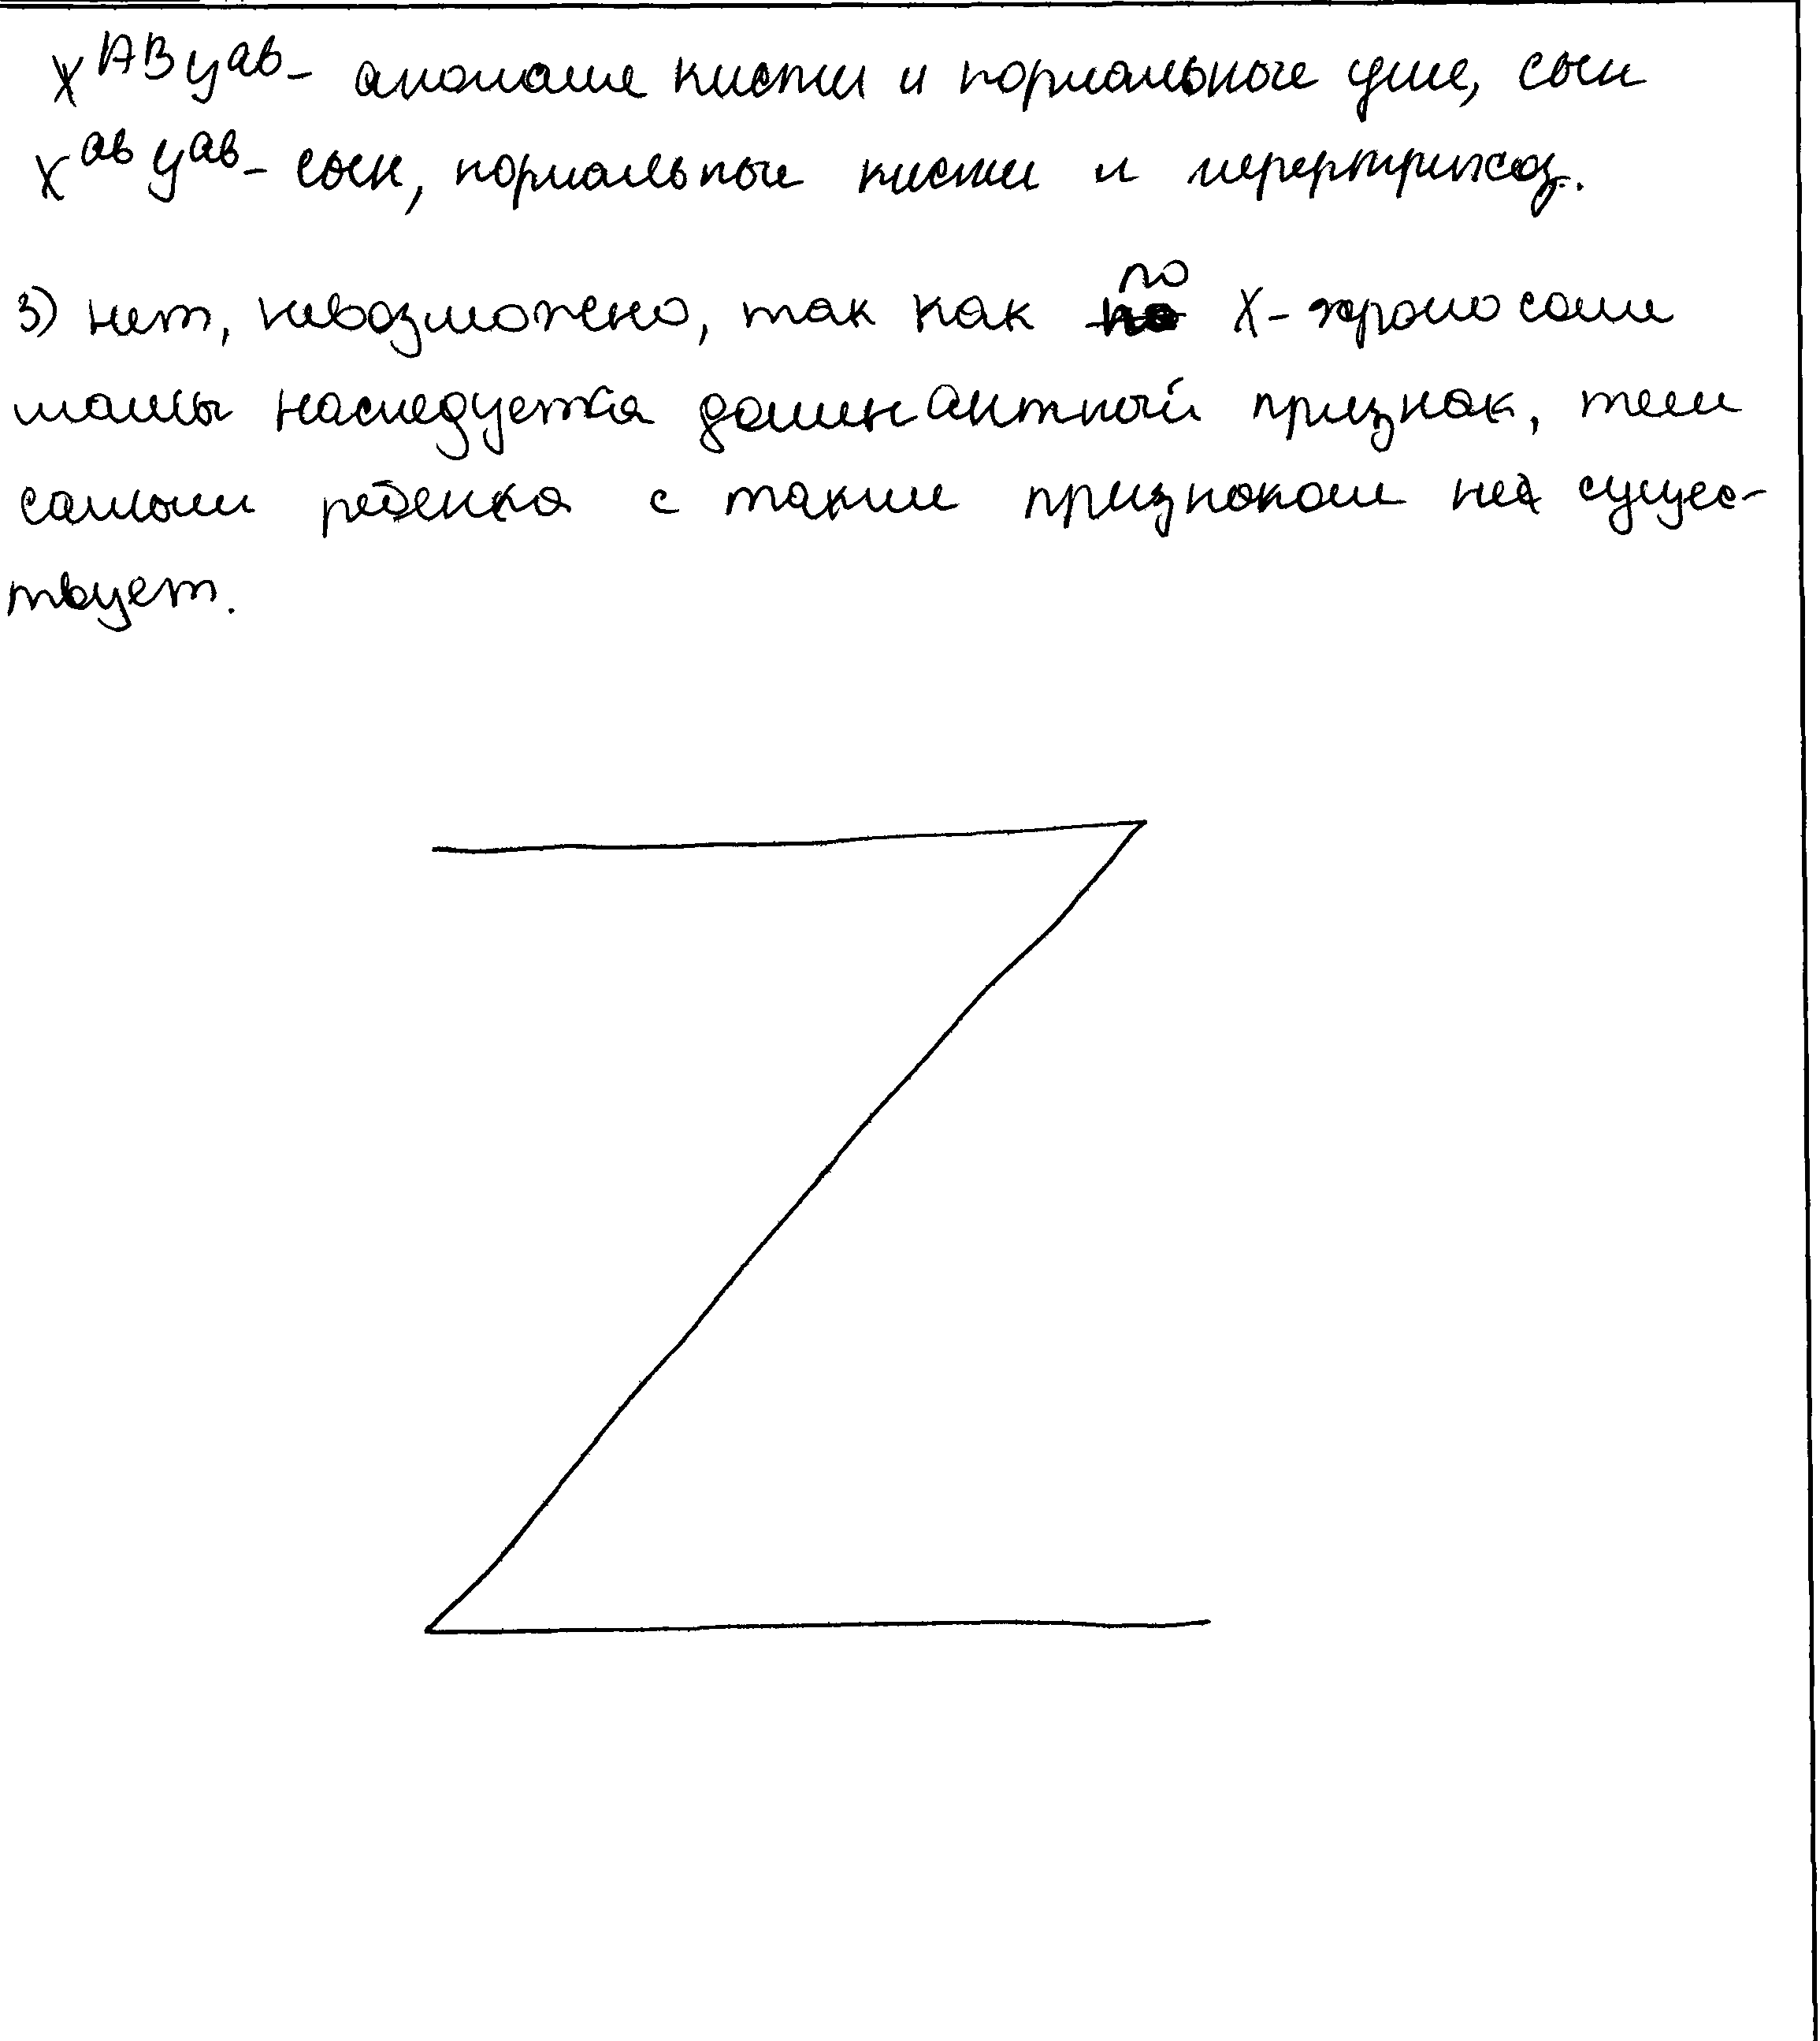 X^АВ У^ав - аномалие кисти и нормальные уши, сын
X^ав У^ав - сын, нормальные кисти и
3) нет, невозможно, так как по X-хромосоме
мамы наследуется доминантный признак, тем
самым ребенка с таким признаком не сущес-
твует.